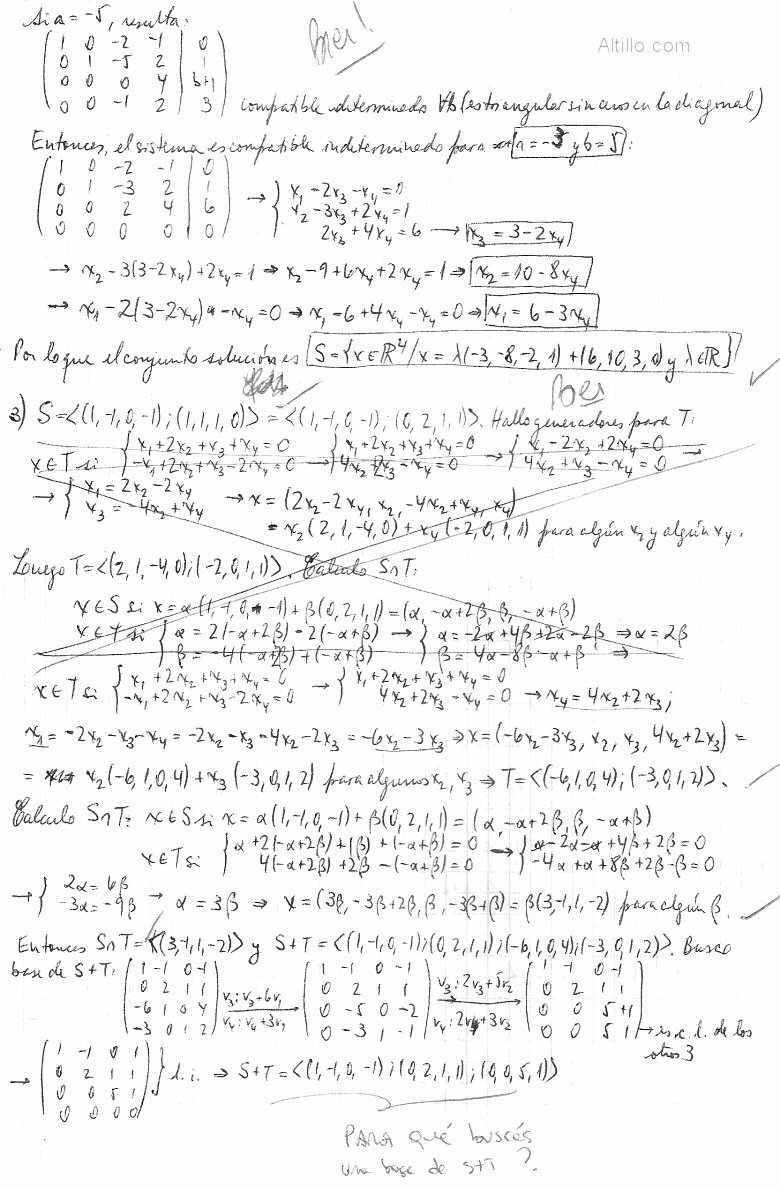 Si a = -5, resulta:
Bien!
Altillo.com
( 1 0 -2 -1 | 0
0 1 -5 2 | 1
0 0 0 4 | b+1
0 0 -1 2 | 3 ) compatible determinado ∀b (es triangular sin ceros en la diagonal)
Entonces, el sistema es compatible indeterminado para a = -3 y b = 5:
( 1 0 -2 -1 | 0
0 1 -3 2 | 1
0 0 2 4 | 6
0 0 0 0 | 0 ) → { x₁ - 2x₃ - x₄ = 0
x₂ - 3x₃ + 2x₄ = 1
2x₃ + 4x₄ = 6 → x₃ = 3 - 2x₄
→ x₂ - 3(3 - 2x₄) + 2x₄ = 1 → x₂ - 9 + 6x₄ + 2x₄ = 1 → x₂ = 10 - 8x₄
→ x₁ - 2(3 - 2x₄) - x₄ = 0 → x₁ - 6 + 4x₄ - x₄ = 0 → x₁ = 6 - 3x₄
Por lo que el conjunto solución es S = {x ∈ ℝ⁴ / x = λ(-3, -8, -2, 1) + (6, 10, 3, 0) y λ ∈ ℝ}
Bien
3) S = <(1, -1, 0, -1); (1, 1, 1, 0)> = <(1, -1, 0, -1); (0, 2, 1, 1)>. Hallo generadores para T:
x ∈ T si { x₁ + 2x₂ + x₃ + x₄ = 0 → { x₁ + 2x₂ + x₃ + x₄ = 0 → { x₁ - 2x₂ + 2x₄ = 0 →
-x₁ + 2x₂ + x₃ - 2x₄ = 0 4x₂ + 2x₃ - x₄ = 0 4x₂ + x₃ - x₄ = 0
→ { x₁ = 2x₂ - 2x₄ → x = (2x₂ - 2x₄, x₂, -4x₂ + x₄, x₄)
x₃ = -4x₂ + x₄ = x₂(2, 1, -4, 0) + x₄(-2, 0, 1, 1) para algún x₂ y algún x₄.
Luego T = <(2, 1, -4, 0); (-2, 0, 1, 1)>. Calculo S∩T:
x ∈ S si x = α(1, -1, 0, -1) + β(0, 2, 1, 1) = (α, -α+2β, β, -α+β)
x ∈ T si { α = 2(-α+2β) - 2(-α+β) → { α = -2α + 4β + 2α - 2β ⇒ α = 2β
β = -4(-α+2β) + (-α+β) β = 4α - 8β - α + β ⇒
x ∈ T si { x₁ + 2x₂ + x₃ + x₄ = 0 → { x₁ + 2x₂ + x₃ + x₄ = 0
-x₁ + 2x₂ + x₃ - 2x₄ = 0 4x₂ + 2x₃ - x₄ = 0 → x₄ = 4x₂ + 2x₃;
x₁ = -2x₂ - x₃ - x₄ = -2x₂ - x₃ - 4x₂ - 2x₃ = -6x₂ - 3x₃ ⇒ x = (-6x₂ - 3x₃, x₂, x₃, 4x₂ + 2x₃) =
= x₂(-6, 1, 0, 4) + x₃(-3, 0, 1, 2) para algunos x₂, x₃ ⇒ T = <(-6, 1, 0, 4); (-3, 0, 1, 2)>.
Calculo S∩T: x ∈ S si x = α(1, -1, 0, -1) + β(0, 2, 1, 1) = (α, -α+2β, β, -α+β)
x ∈ T si { α + 2(-α+2β) + (β) + (-α+β) = 0 → { α - 2α - α + 4β + 2β = 0
4(-α+2β) + 2β - (-α+β) = 0 -4α + α + 8β + 2β - β = 0
→ { 2α = 6β → α = 3β ⇒ x = (3β, -3β+2β, β, -3β+β) = β(3, -1, 1, -2) para algún β.
-3α = -9β
Entonces S∩T = <(3, -1, 1, -2)> y S+T = <(1, -1, 0, -1); (0, 2, 1, 1); (-6, 1, 0, 4); (-3, 0, 1, 2)>. Busco
base de S+T: ( 1 -1 0 -1
0 2 1 1
-6 1 0 4
-3 0 1 2 ) v₃: v₃+6v₁ v₄: v₄+3v₁ → ( 1 -1 0 -1
0 2 1 1
0 -5 0 -2
0 -3 1 -1 ) v₃: 2v₃+5v₂ v₄: 2v₄+3v₂ → ( 1 -1 0 -1
0 2 1 1
0 0 5 +1
0 0 5 1 ) → es c.l. de los otros 3
→ ( 1 -1 0 1
0 2 1 1
0 0 5 1
0 0 0 0 ) } l.i. ⇒ S+T = <(1, -1, 0, -1); (0, 2, 1, 1); (0, 0, 5, 1)>
PARA QUÉ buscás
una base de S+T?